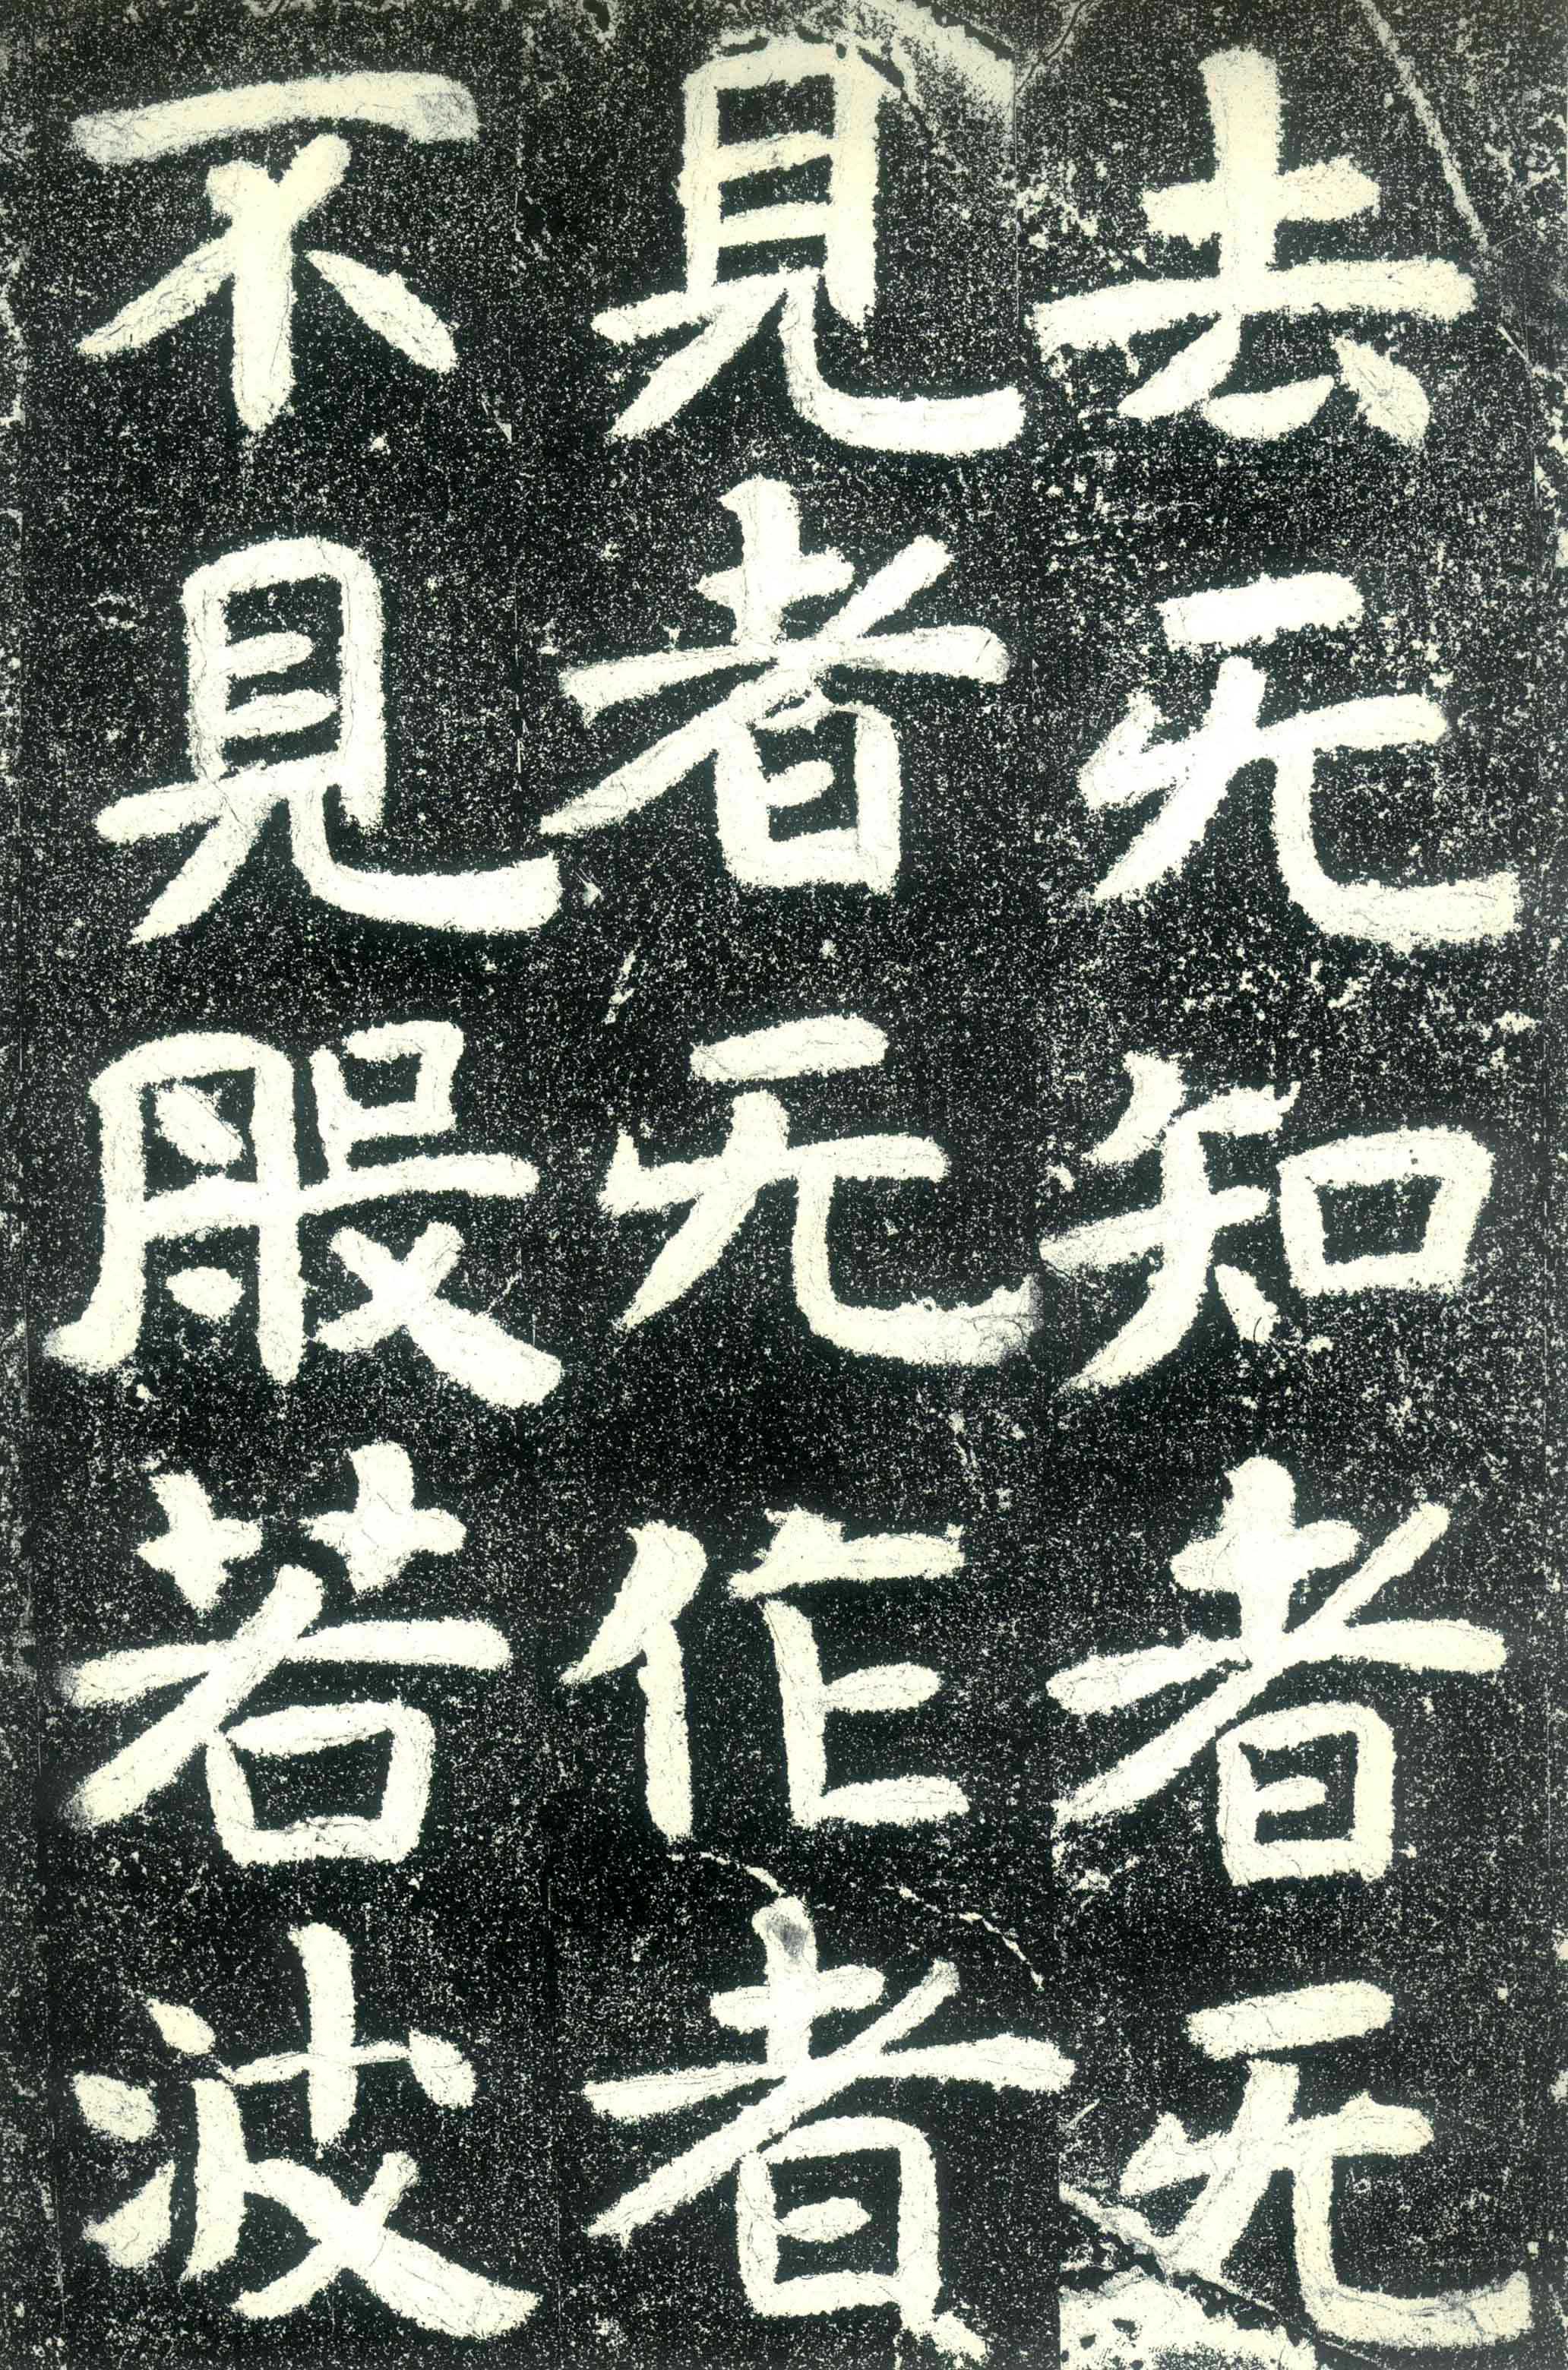 去无知者无
見者无作者
不見般若波